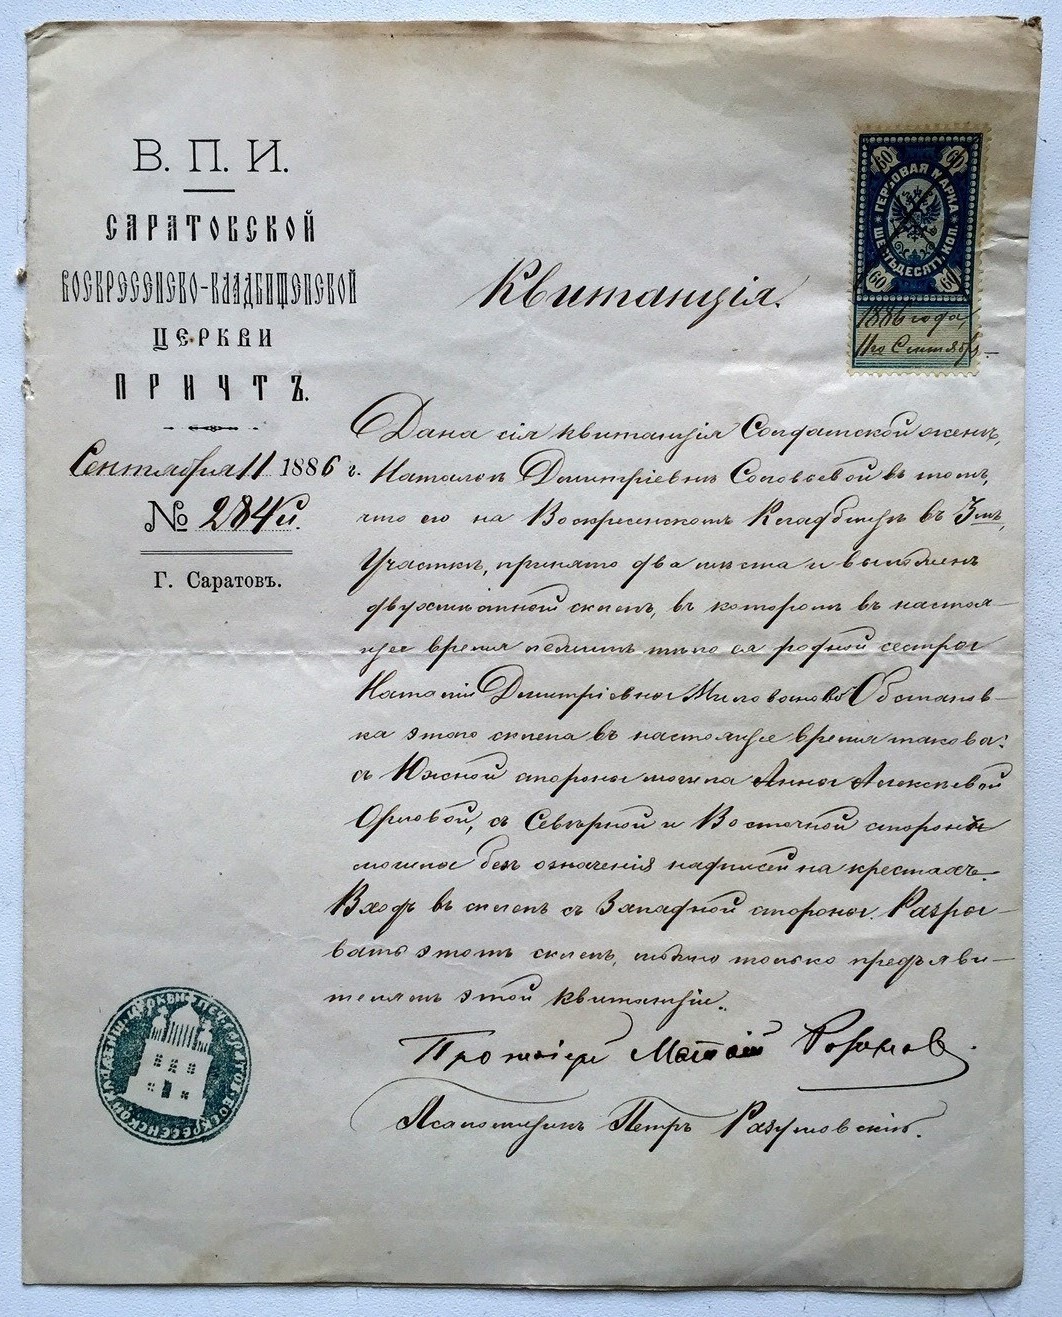 В. П. И.
САРАТОВСКОЙ
ВОСКРЕСЕНСКО-КЛАДБИЩЕНСКОЙ
ЦЕРКВИ
ПРИЧТЪ.
Сентября 11 1886 г.
№ 284й.
Г. Саратовъ.
60 60
ГЕРБОВАЯ МАРКА
ШЕСТЬДЕСЯТЪ КОП.
60 60
1886 года,
11го Сентября
Квитанція.
Дана сія квитанція Солдатской женѣ,
Наталіи Димитріевнѣ Соловьевой въ томъ,
что ею на Воскресенскомъ Кладбищѣ въ 3мъ,
Участкѣ, принято два мѣста и выложенъ
двухмѣстной склепъ, въ которомъ въ настоя-
щее время лежитъ тѣло ея родной сестры
Наталіи Димитріевны Миловановой Обстанов-
ка этого склепа въ настоящее время такова:
съ Южной стороны могила Анны Алексѣевой
Орловой, съ Сѣверной и Восточной стороны
могилы безъ означенія надписей на крестахъ.
Входъ въ склепъ съ Западной стороны. Разры-
вать этотъ склепъ, можно только предъяви-
телямъ этой квитанціи.
Протоіерей
Псаломщикъ Петръ Разумовскій.